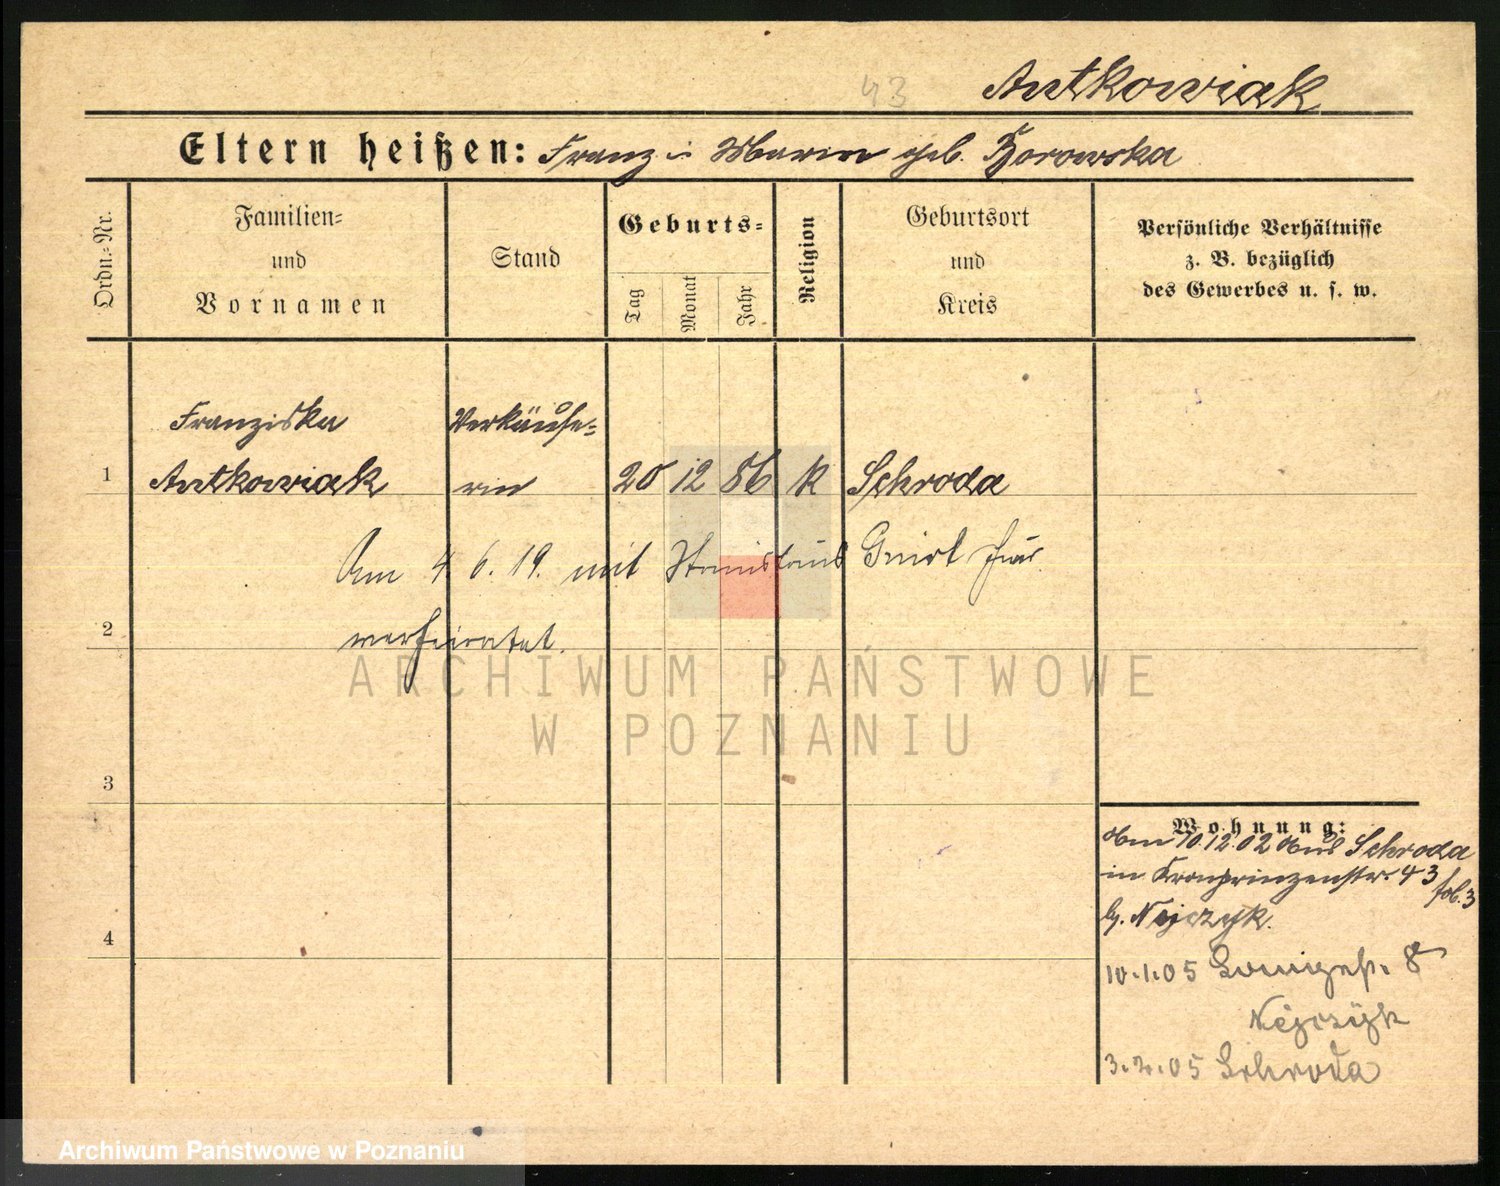 43 Antkowiak
Eltern heißen: Franz u Marie geb. Borowska
Ordn.-Nr.
Familien-
und
Vornamen
Stand
Geburts-
Tag
Monat
Jahr
Religion
Geburtsort
und
Kreis
Persönliche Verhältnisse
z. B. bezüglich
des Gewerbes u. s. w.
Franziska Verkäufe-
1 Antkowiak rin 20 12 86 K Schroda
Am 4. 6. 19. mit Stanislaus hier
verheiratet.
2
3
4
Wohnung:
Am 10.12.02 aus Schroda
in Kronprinzenstr. 43
b. Nejczyk.
10.1.05 8
Nejczyk
3.2.05 Schroda
ARCHIWUM PAŃSTWOWE
W POZNANIU
Archiwum Państwowe w Poznaniu